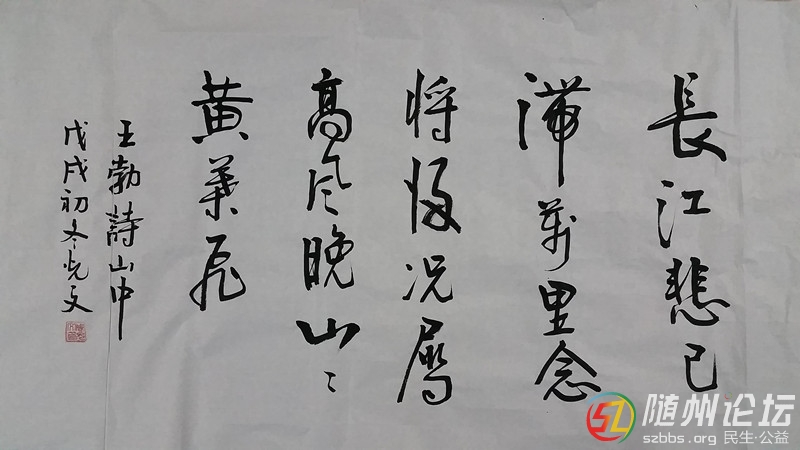 長江悲已
滞萬里念
将歸况屬
高風晚山〻
黄葉飛
王勃詩山中
戊戌初冬文
随州论坛
szbbs.org 民生·公益